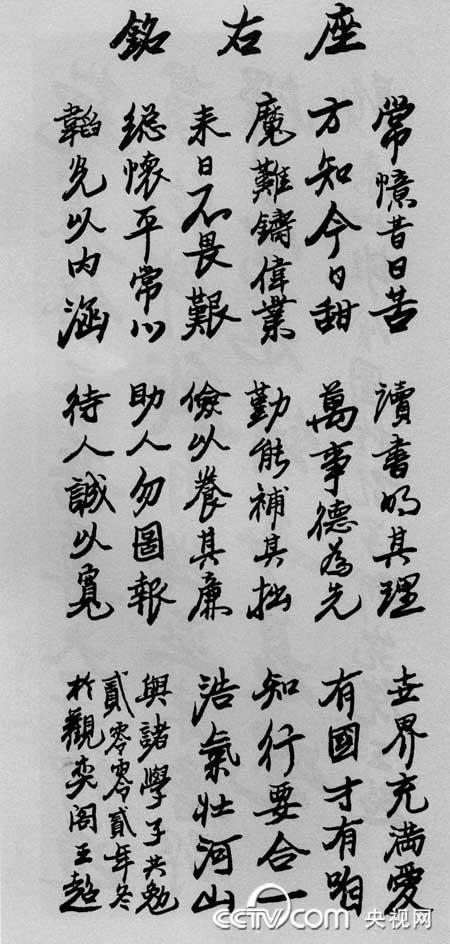 座右銘
常憶昔日苦
方知今日甜
魔難鑄偉業
来日不畏艱
總懷平常心
韜光以内涵
讀書明其理
萬事德為先
勤能補其拙
儉以養其廉
助人勿圖報
待人誠以寬
世界充滿愛
有國才有咱
知行要合一
浩氣壮河山
與諸學子共勉
貳零零貳年冬
於觀奕阁王超
CCTV.com 央视网